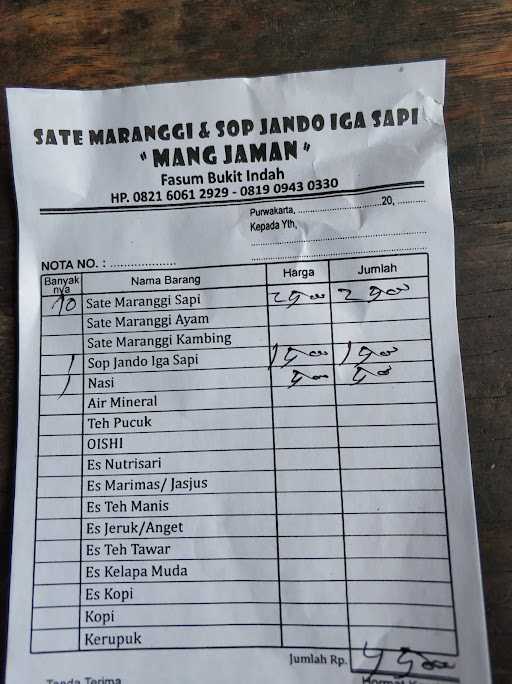 SATE MARANGGI & SOP JANDO IGA SAPI
" MANG JAMAN "
Fasum Bukit Indah
HP. 0821 6061 2929 - 0819 0943 0330
Purwakarta, ..............................20, ..........
Kepada Yth, ..........................................
NOTA NO. : ...................
Banyak nya Nama Barang Harga Jumlah
10 Sate Maranggi Sapi 25000 25000
Sate Maranggi Ayam
Sate Maranggi Kambing
1 Sop Jando Iga Sapi 15000 15000
1 Nasi 5000 5000
Air Mineral
Teh Pucuk
OISHI
Es Nutrisari
Es Marimas/ Jasjus
Es Teh Manis
Es Jeruk/Anget
Es Teh Tawar
Es Kelapa Muda
Es Kopi
Kopi
Kerupuk
Jumlah Rp. 45000
Tanda Terima Hormat